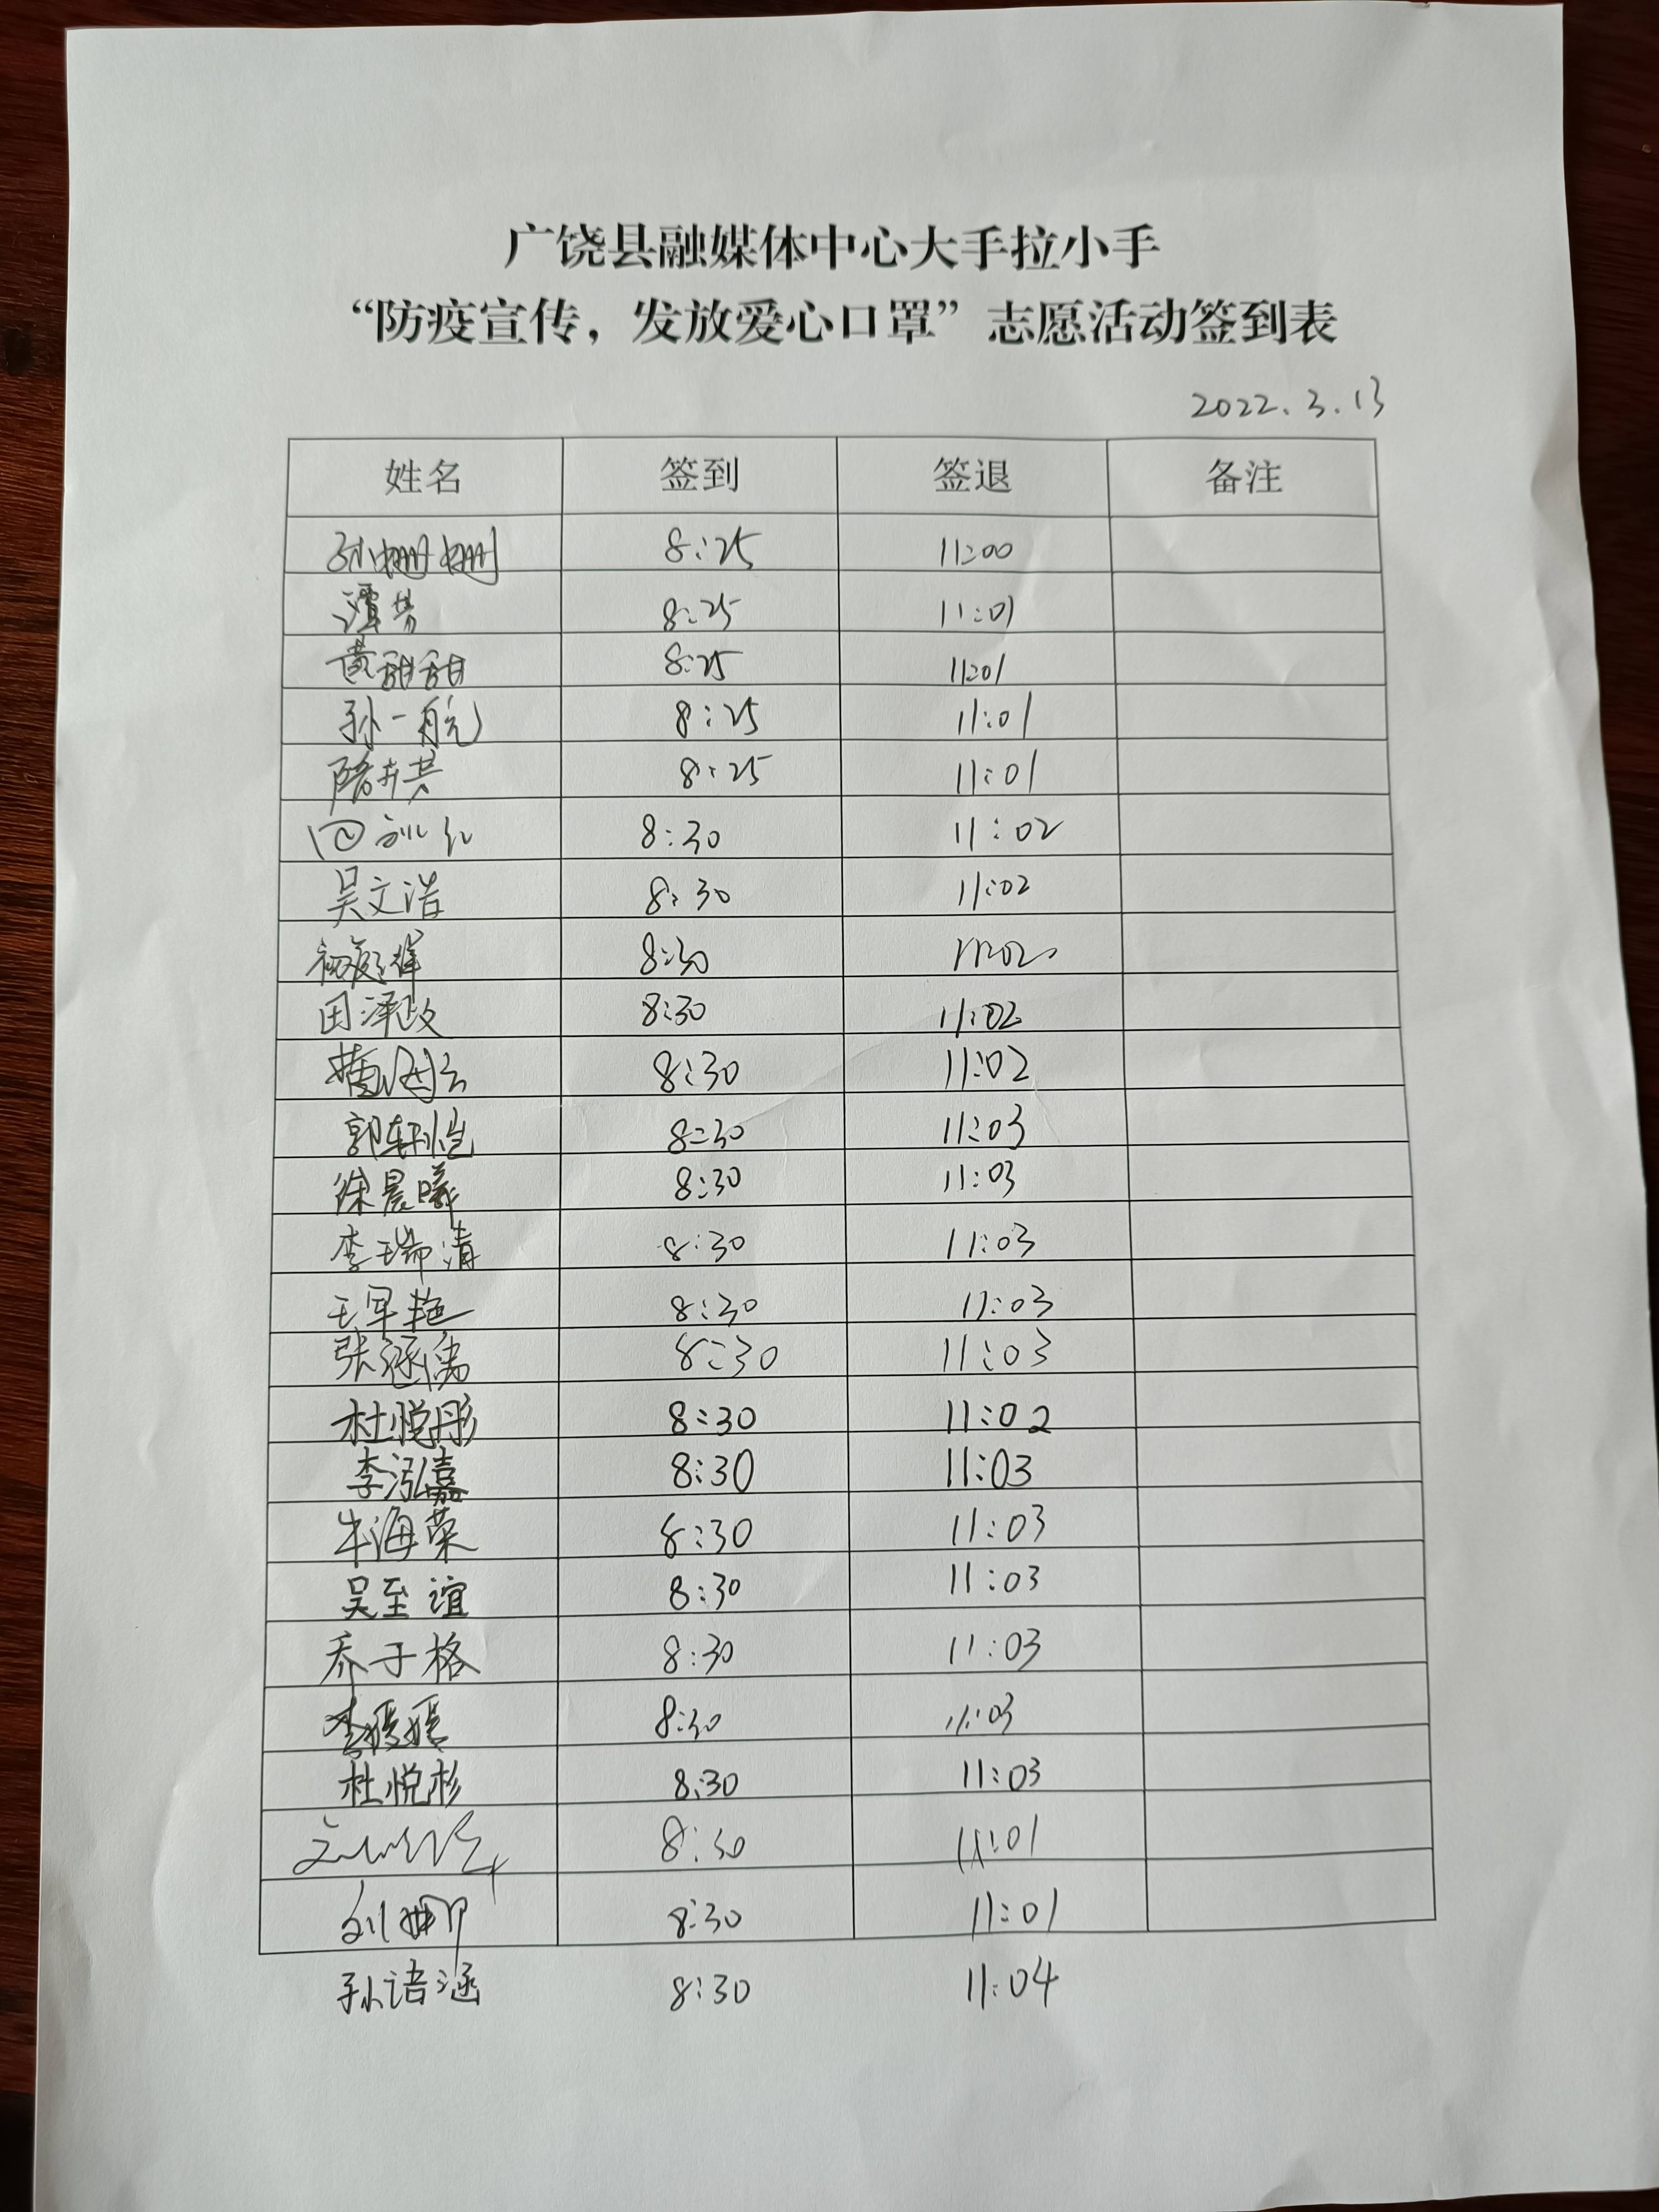 广饶县融媒体中心大手拉小手
“防疫宣传，发放爱心口罩”志愿活动签到表
2022.3.13
姓名 签到 签退 备注
孙姗姗 8:25 11:00
谭芳 8:25 11:01
黄甜甜 8:25 11:01
孙一航 8:25 11:01
8:25 11:01
8:30 11:02
吴文浩 8:30 11:02
8:30 11:02
田泽政 8:30 11:02
8:30 11:02
郭轩恺 8:30 11:03
徐晨曦 8:30 11:03
李瑞清 8:30 11:03
王军艳 8:30 11:03
张涵禹 8:30 11:03
杜悦彤 8:30 11:02
李泓嘉 8:30 11:03
牛海荣 8:30 11:03
吴至谊 8:30 11:03
乔子格 8:30 11:03
李媛媛 8:30 11:03
杜悦杉 8:30 11:03
8:30 11:01
刘娜 8:30 11:01
孙语涵 8:30 11:04